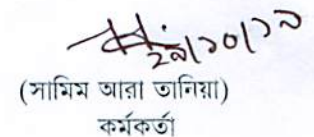 ২৯/১০/১৯
(সামিম আরা তানিয়া)
কর্মকর্তা